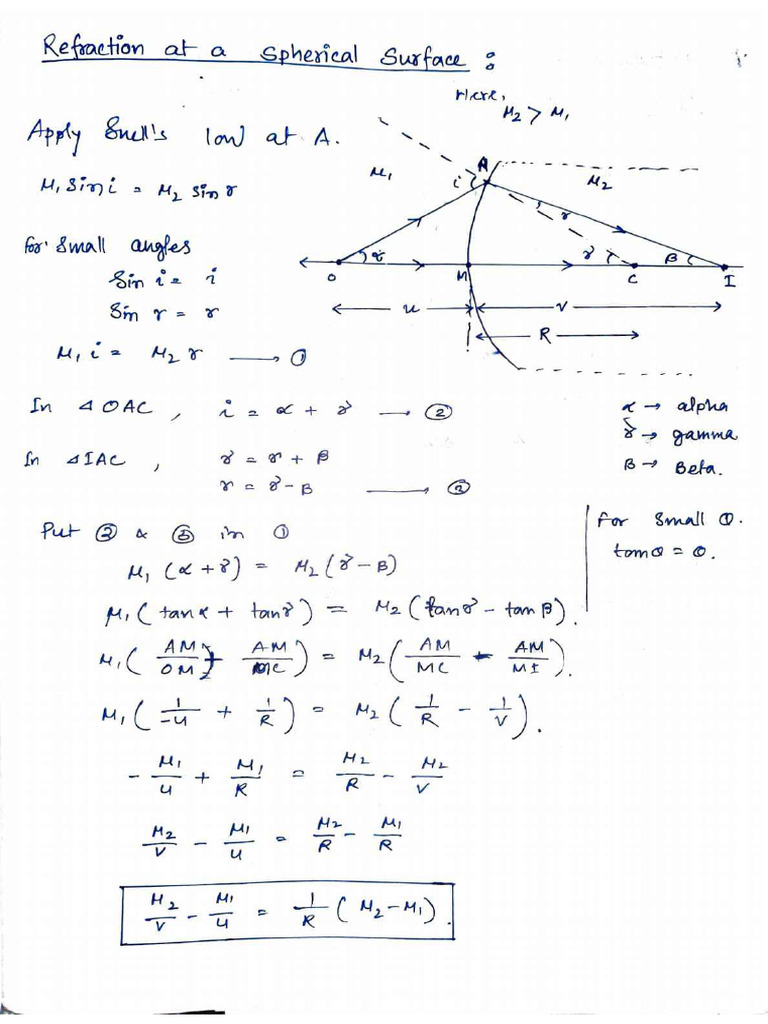 Refraction at a Spherical Surface :
Here,
μ₂ > μ₁
Apply Snell's low at A.
μ₁ sin i = μ₂ sin r
for small angles
Sin i = i
Sin r = r
μ₁ i = μ₂ r → ①
A
μ₁
i
μ₂
r
α
γ
β
O
M
C
I
u
v
R
In △OAC, i = α + γ → ②
α → alpha
γ → gamma
β → Beta.
In △IAC, γ = r + β
r = γ - β → ③
Put ② & ③ in ①
for small θ.
tanθ = θ.
μ₁ (α + γ) = μ₂ (γ - β)
μ₁ (tanα + tanγ) = μ₂ (tanγ - tanβ).
μ₁ (AM/OM + AM/MC) = μ₂ (AM/MC - AM/MI).
μ₁ (1/-u + 1/R) = μ₂ (1/R - 1/v).
- μ₁/u + μ₁/R = μ₂/R - μ₂/v
μ₂/v - μ₁/u = μ₂/R - μ₁/R
μ₂/v - μ₁/u = 1/R (μ₂ - μ₁).